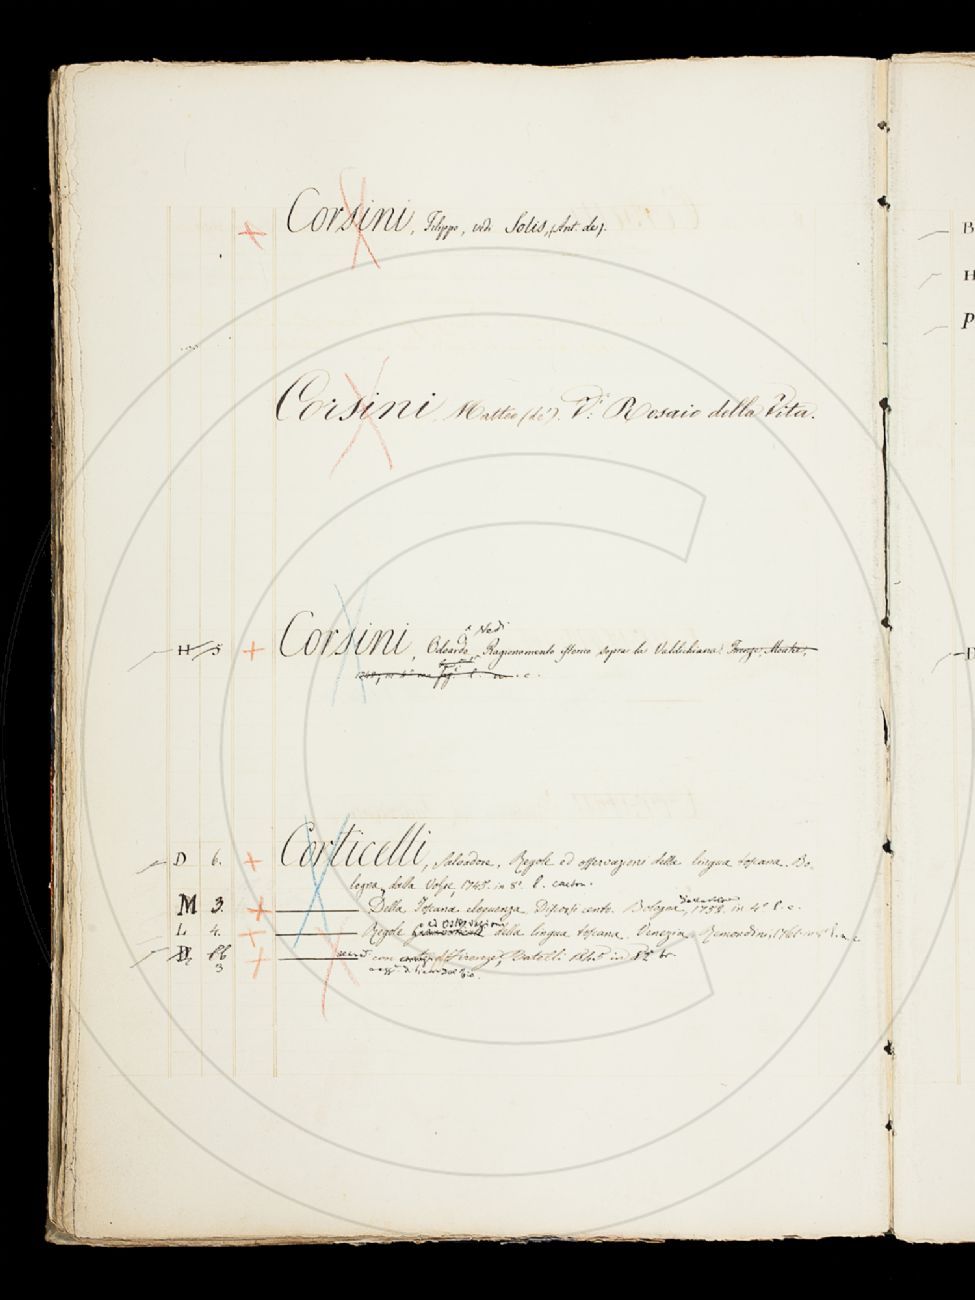 Corsini, Filippo, vedi Solis, (Ant. de).
Corsini Matteo (de'). V. Rosaio della Vita.
H 5 + Corsini, Odoardo Ragionamento istorico sopra la Valdichiana. Firenze,
Vedi
D 6. + Corticelli, Salvadore. Regole ed osservazioni della lingua toscana. Bo-
logna, dalla Volpe, 1745. in 8°. l. cacton.
M 3. + Della Toscana eloquenza Discorsi cento. Bologna, 1752. in 4° l. c.
L 4. + Regole ed Osservazioni della lingua toscana. Venezia, Remondini,
+ con Firenze, Batelli in br.
B
H
P
D